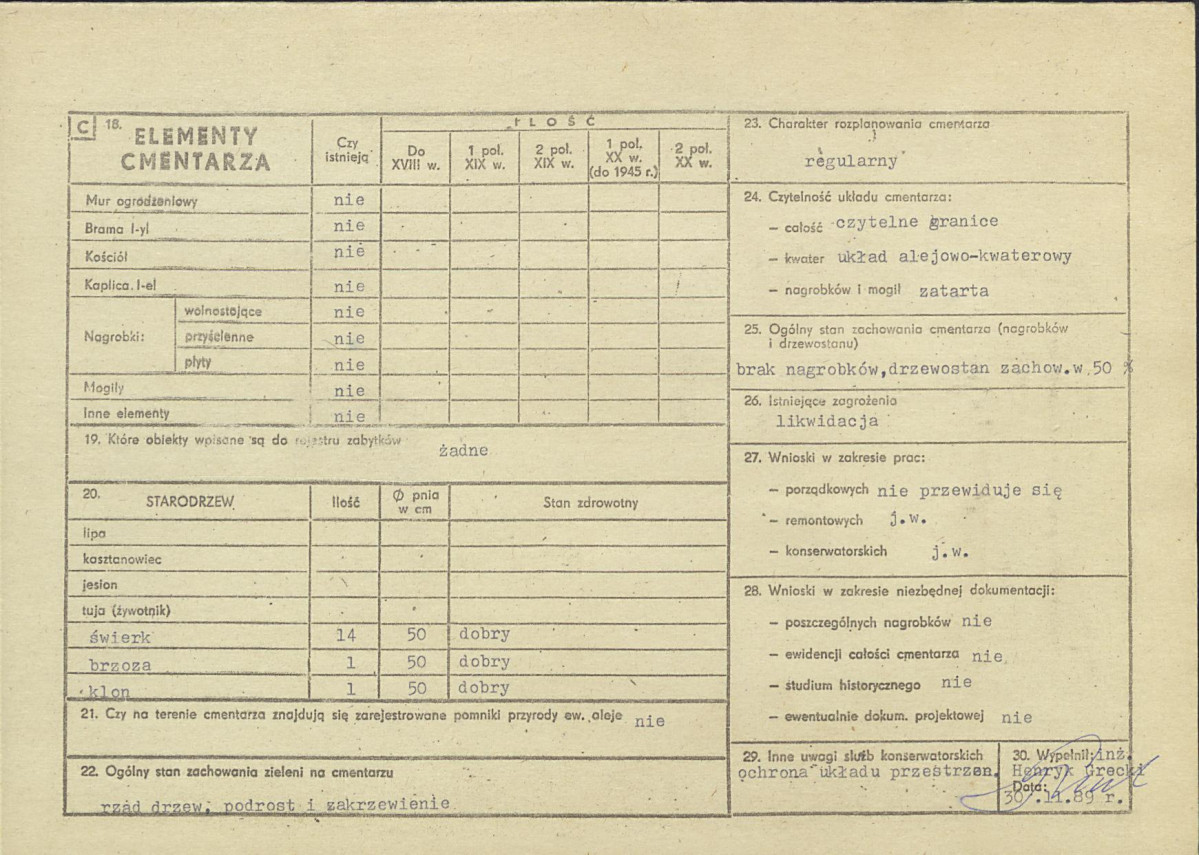 C 18. ELEMENTY CMENTARZA
Czy istnieją
I L O Ś Ć
Do XVIII w.
1 pol. XIX w.
2 pol. XIX w.
1 pol. XX w. (do 1945 r.)
2 pol. XX w.
Mur ogrodzeniowy nie
Brama I-yl nie
Kościół nie
Kaplica I-el nie
Nagrobki:
wolnostojące nie
przyścienne nie
płyty nie
Mogiły nie
Inne elementy nie
19. Które obiekty wpisane są do rejestru zabytków żadne
20. STARODRZEW Ilość Ø pnia w cm Stan zdrowotny
lipa
kasztanowiec
jesion
tuja (żywotnik)
świerk 14 50 dobry
brzoza 1 50 dobry
klon 1 50 dobry
21. Czy na terenie cmentarza znajdują się zarejestrowane pomniki przyrody ew. aleje nie
22. Ogólny stan zachowania zieleni na cmentarzu
rząd drzew, podrost i zakrzewienie
23. Charakter rozplanowania cmentarza
regularny
24. Czytelność układu cmentarza:
— całość czytelne granice
— kwater układ alejowo-kwaterowy
— nagrobków i mogił zatarta
25. Ogólny stan zachowania cmentarza (nagrobków
i drzewostanu)
brak nagrobków,drzewostan zachow.w 50 %
26. Istniejące zagrożenia
likwidacja
27. Wnioski w zakresie prac:
— porządkowych nie przewiduje się
— remontowych j.w.
— konserwatorskich j.w.
28. Wnioski w zakresie niezbędnej dokumentacji:
— poszczególnych nagrobków nie
— ewidencji całości cmentarza nie
— studium historycznego nie
— ewentualnie dokum. projektowej nie
29. Inne uwagi służb konserwatorskich
ochrona układu przestrzen.
30. Wypełnił: inż.
Henryk Grecki
Data:
30.11.89 r.